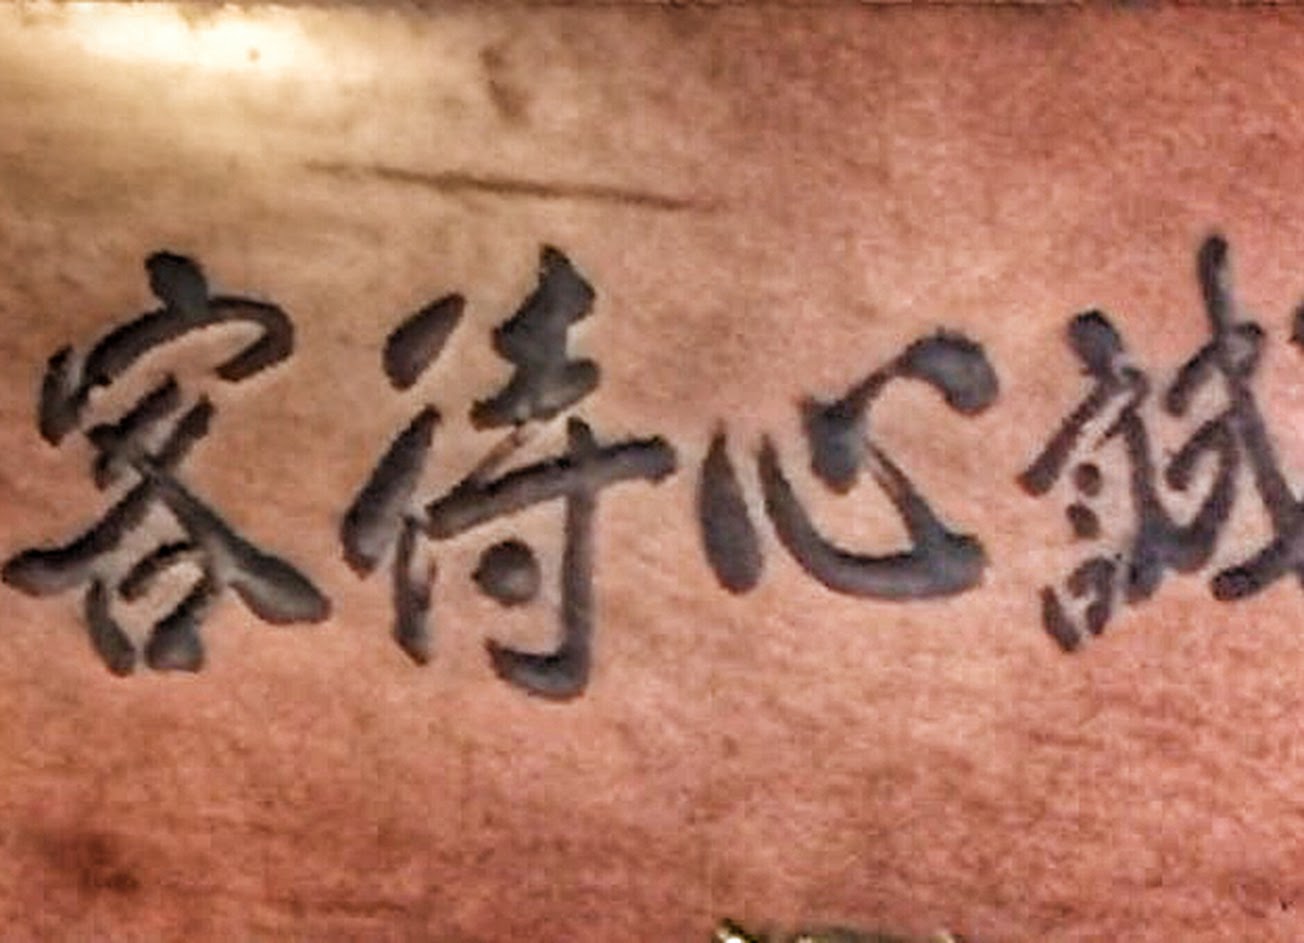 誠心待客